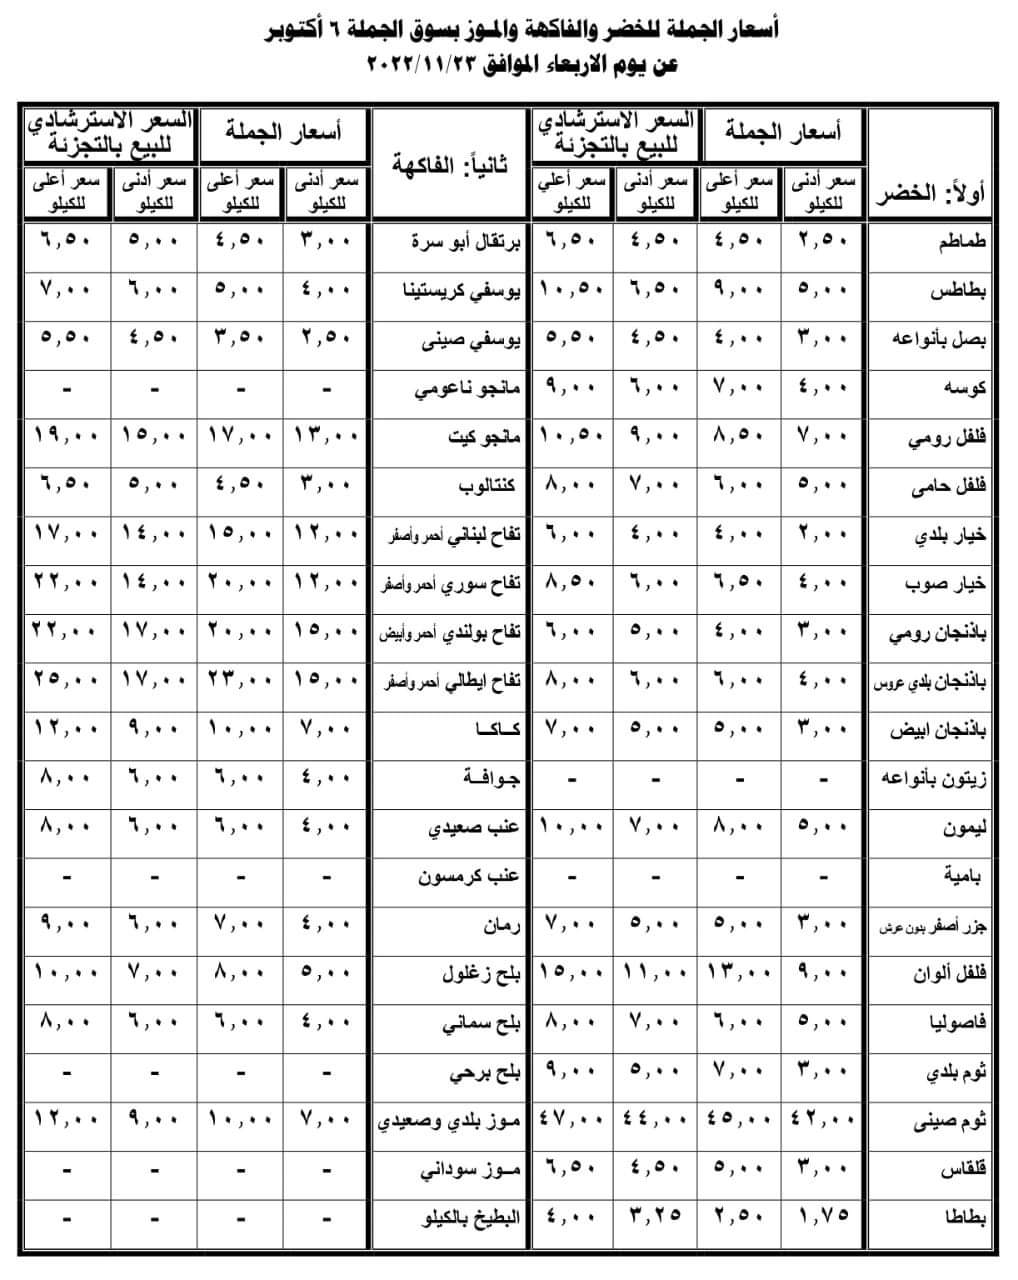 أسعار الجملة للخضر والفاكهة والموز بسوق الجملة ٦ أكتوبر
عن يوم الاربعاء الموافق ٢٠٢٢/١١/٢٣
أولاً: الخضر أسعار الجملة السعر الاسترشادي للبيع بالتجزئة ثانياً: الفاكهة أسعار الجملة السعر الاسترشادي للبيع بالتجزئة
سعر أدنى للكيلو سعر أعلى للكيلو سعر أدنى للكيلو سعر أعلي للكيلو سعر أدنى للكيلو سعر أعلى للكيلو سعر أدنى للكيلو سعر أعلى للكيلو
طماطم ٢,٥٠ ٤,٥٠ ٤,٥٠ ٦,٥٠ برتقال أبو سرة ٣,٠٠ ٤,٥٠ ٥,٠٠ ٦,٥٠
بطاطس ٥,٠٠ ٩,٠٠ ٦,٥٠ ١٠,٥٠ يوسفي كريستينا ٤,٠٠ ٥,٠٠ ٦,٠٠ ٧,٠٠
بصل بأنواعه ٣,٠٠ ٤,٠٠ ٤,٥٠ ٥,٥٠ يوسفي صينى ٢,٥٠ ٣,٥٠ ٤,٥٠ ٥,٥٠
كوسه ٤,٠٠ ٧,٠٠ ٦,٠٠ ٩,٠٠ مانجو ناعومي - - - -
فلفل رومي ٧,٠٠ ٨,٥٠ ٩,٠٠ ١٠,٥٠ مانجو كيت ١٣,٠٠ ١٧,٠٠ ١٥,٠٠ ١٩,٠٠
فلفل حامى ٥,٠٠ ٦,٠٠ ٧,٠٠ ٨,٠٠ كنتالوب ٣,٠٠ ٤,٥٠ ٥,٠٠ ٦,٥٠
خيار بلدي ٢,٠٠ ٤,٠٠ ٤,٠٠ ٦,٠٠ تفاح لبناني أحمر وأصفر ١٢,٠٠ ١٥,٠٠ ١٤,٠٠ ١٧,٠٠
خيار صوب ٤,٠٠ ٦,٥٠ ٦,٠٠ ٨,٥٠ تفاح سوري أحمر وأصفر ١٢,٠٠ ٢٠,٠٠ ١٤,٠٠ ٢٢,٠٠
باذنجان رومي ٣,٠٠ ٤,٠٠ ٥,٠٠ ٦,٠٠ تفاح بولندي أحمر وأبيض ١٥,٠٠ ٢٠,٠٠ ١٧,٠٠ ٢٢,٠٠
باذنجان بلدي عروس ٤,٠٠ ٦,٠٠ ٦,٠٠ ٨,٠٠ تفاح ايطالي أحمر وأصفر ١٥,٠٠ ٢٣,٠٠ ١٧,٠٠ ٢٥,٠٠
باذنجان ابيض ٣,٠٠ ٥,٠٠ ٥,٠٠ ٧,٠٠ كـاكـا ٧,٠٠ ١٠,٠٠ ٩,٠٠ ١٢,٠٠
زيتون بأنواعه - - - - جـوافـة ٤,٠٠ ٦,٠٠ ٦,٠٠ ٨,٠٠
ليمون ٥,٠٠ ٨,٠٠ ٧,٠٠ ١٠,٠٠ عنب صعيدي ٤,٠٠ ٦,٠٠ ٦,٠٠ ٨,٠٠
بامية - - - - عنب كرمسون - - - -
جزر أصفر بدون عرش ٣,٠٠ ٥,٠٠ ٥,٠٠ ٧,٠٠ رمان ٤,٠٠ ٧,٠٠ ٦,٠٠ ٩,٠٠
فلفل ألوان ٩,٠٠ ١٣,٠٠ ١١,٠٠ ١٥,٠٠ بلح زغلول ٥,٠٠ ٨,٠٠ ٧,٠٠ ١٠,٠٠
فاصوليا ٥,٠٠ ٦,٠٠ ٧,٠٠ ٨,٠٠ بلح سماني ٤,٠٠ ٦,٠٠ ٦,٠٠ ٨,٠٠
ثوم بلدي ٣,٠٠ ٧,٠٠ ٥,٠٠ ٩,٠٠ بلح برحي - - - -
ثوم صينى ٤٢,٠٠ ٤٥,٠٠ ٤٤,٠٠ ٤٧,٠٠ مـوز بلدي وصعيدي ٧,٠٠ ١٠,٠٠ ٩,٠٠ ١٢,٠٠
قلقاس ٣,٠٠ ٥,٠٠ ٤,٥٠ ٦,٥٠ مــوز سوداني - - - -
بطاطا ١,٧٥ ٢,٥٠ ٣,٢٥ ٤,٠٠ البطيخ بالكيلو - - - -